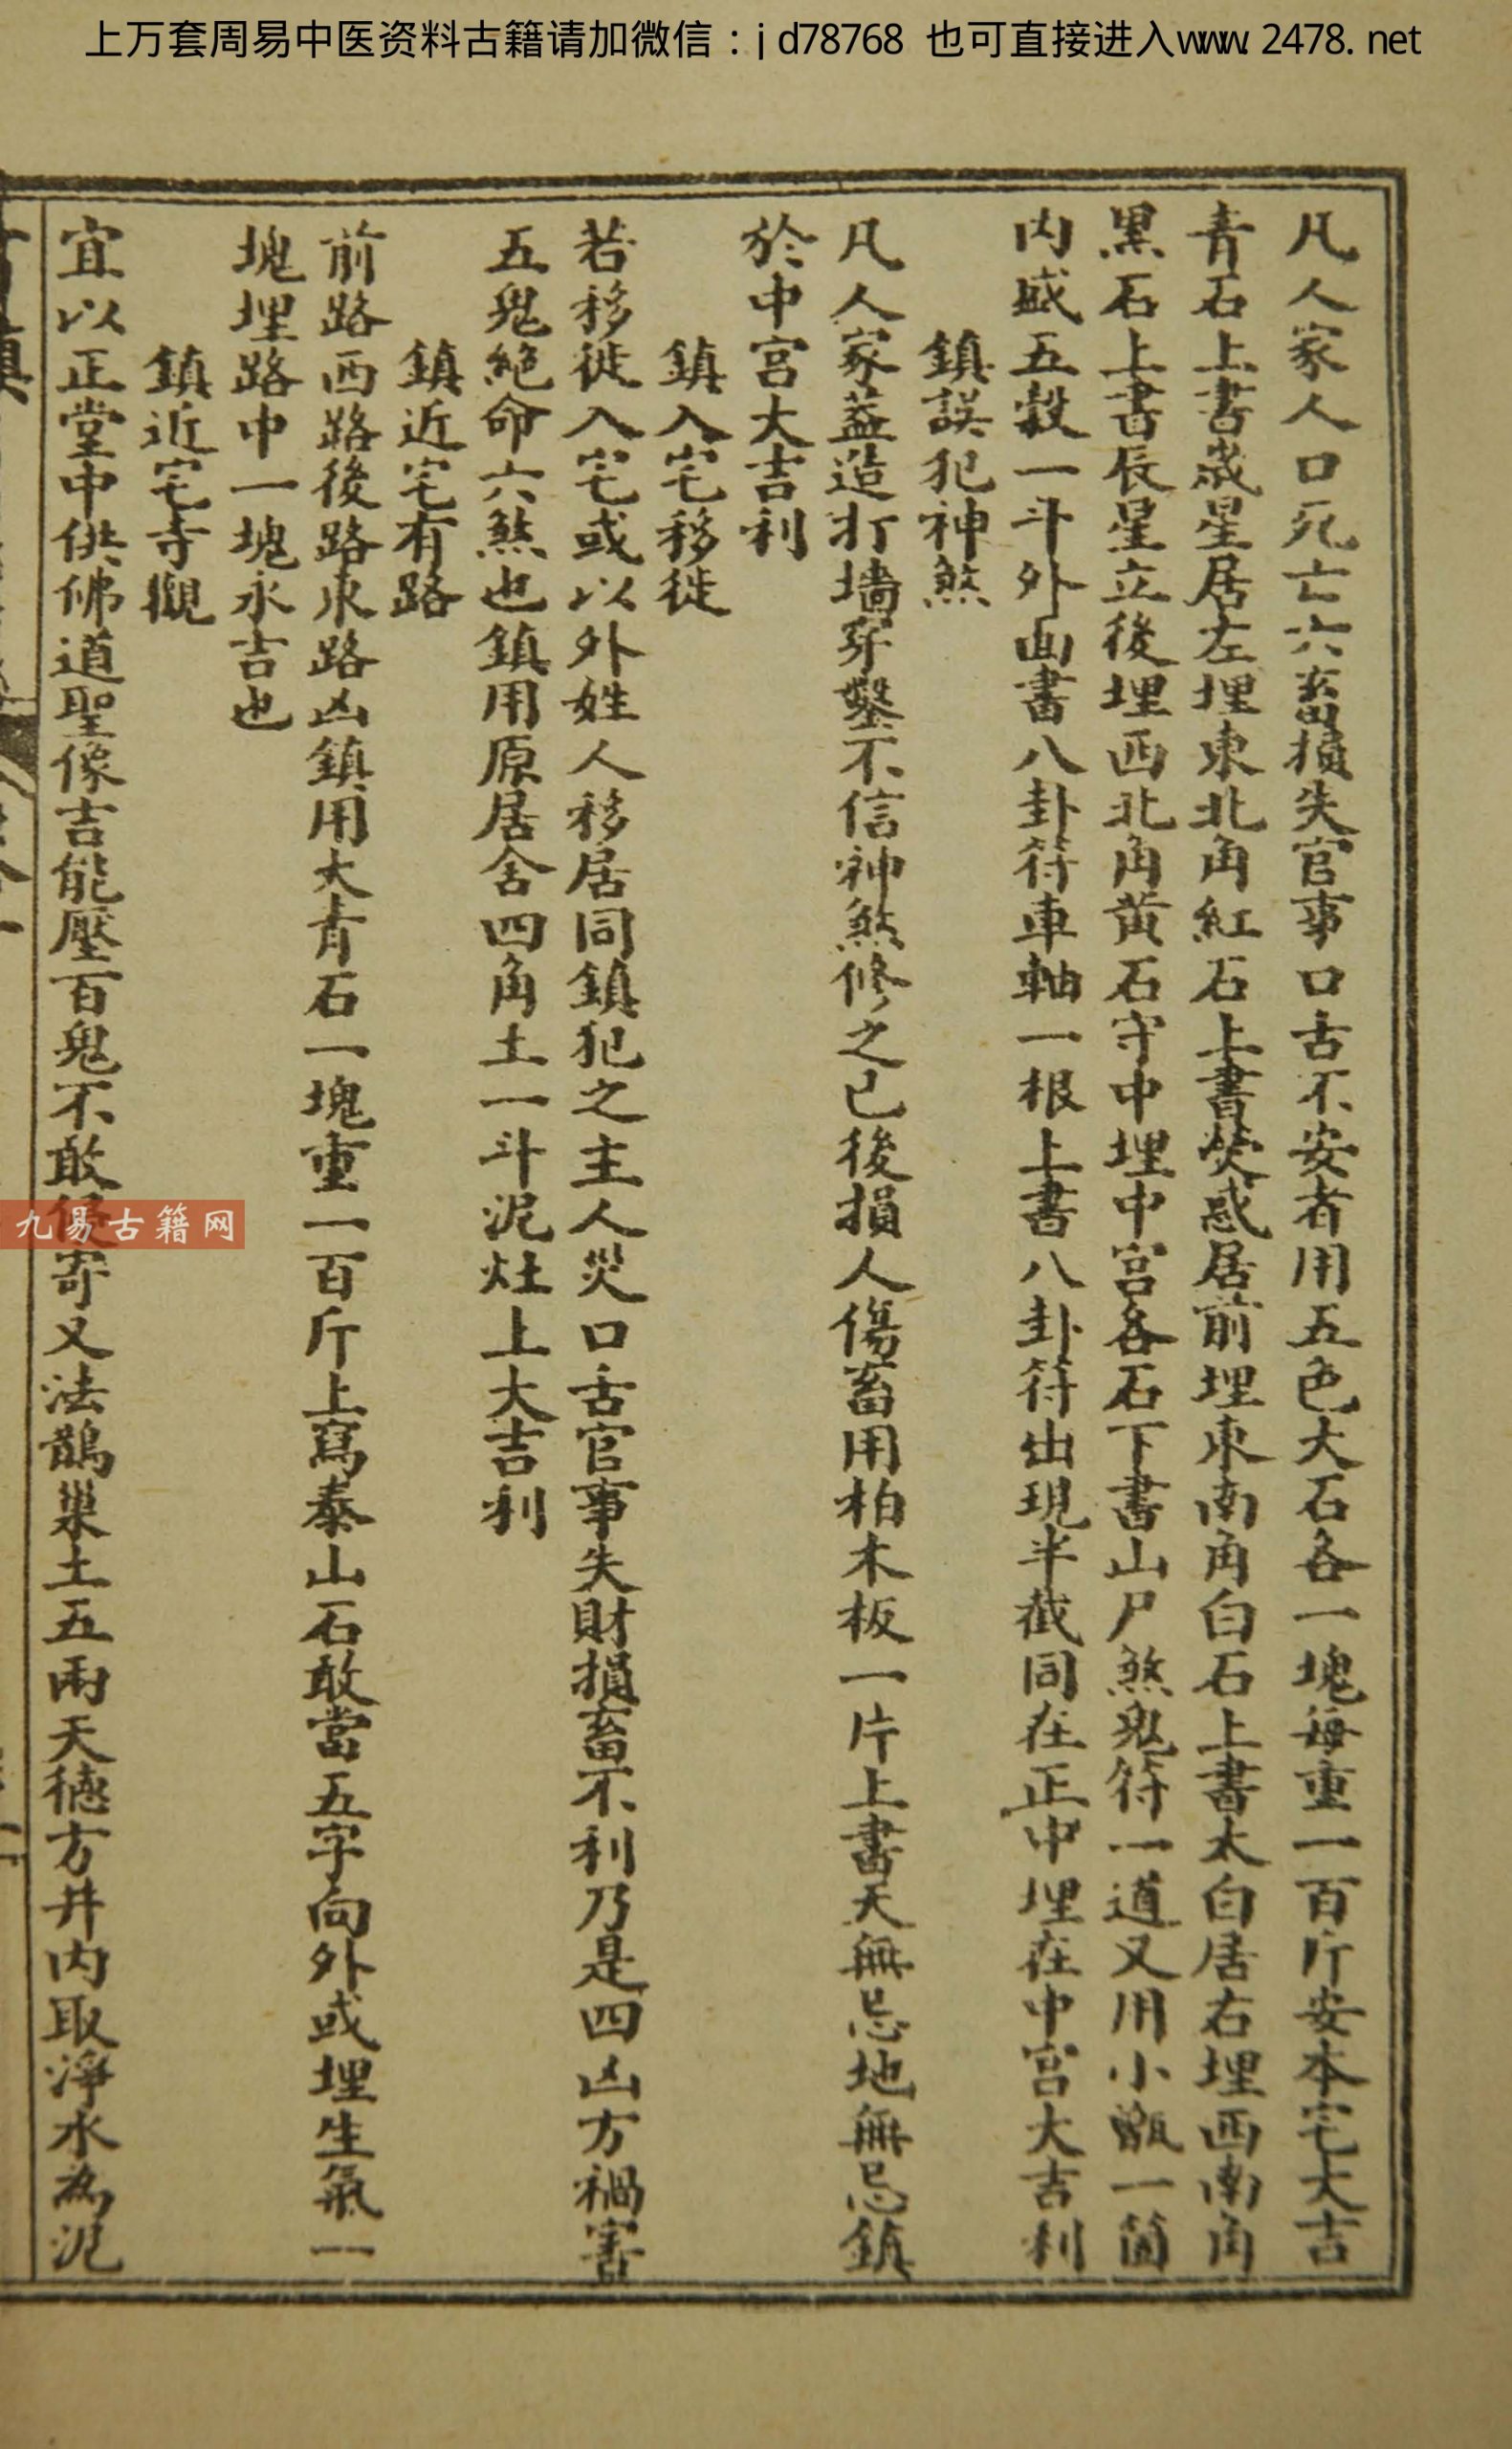 上万套周易中医资料古籍请加微信：jd78768 也可直接进入www.2478.net
凡人家人口死亡六畜損失官事口舌不安者用五色大石各一塊每重一百斤安本宅大吉
青石上書歲星居左埋東北角紅石上書熒惑居前埋東南角白石上書太白居右埋西南角
黑石上書辰星立後埋西北角黄石守中埋中宫各石下書山尸煞鬼符一道又用小瓶一箇
内盛五穀一斗外面書八卦符車軸一根上書八卦符出現半截同在正中埋在中宫大吉利
鎮誤犯神煞
凡人家葢造打墻穿鑿不信神煞修之已後損人傷畜用柏木板一片上書天無忌地無忌鎮
於中宫大吉利
鎮入宅移徙
若移徙入宅或以外姓人移居同鎮犯之主人災口舌官事失財損畜不利乃是四凶方禍害
五鬼絶命六煞也鎮用原居舍四角土一斗泥灶上大吉利
鎮近宅有路
前路西路後路東路凶鎮用大青石一塊重一百斤上寫泰山石敢當五字向外或埋生氣一
塊埋路中一塊永吉也
鎮近宅寺觀
宜以正堂中供佛道聖像吉能壓百鬼不敢侵寄又法鵲巢土五兩天德方井内取淨水為泥
九易古籍网